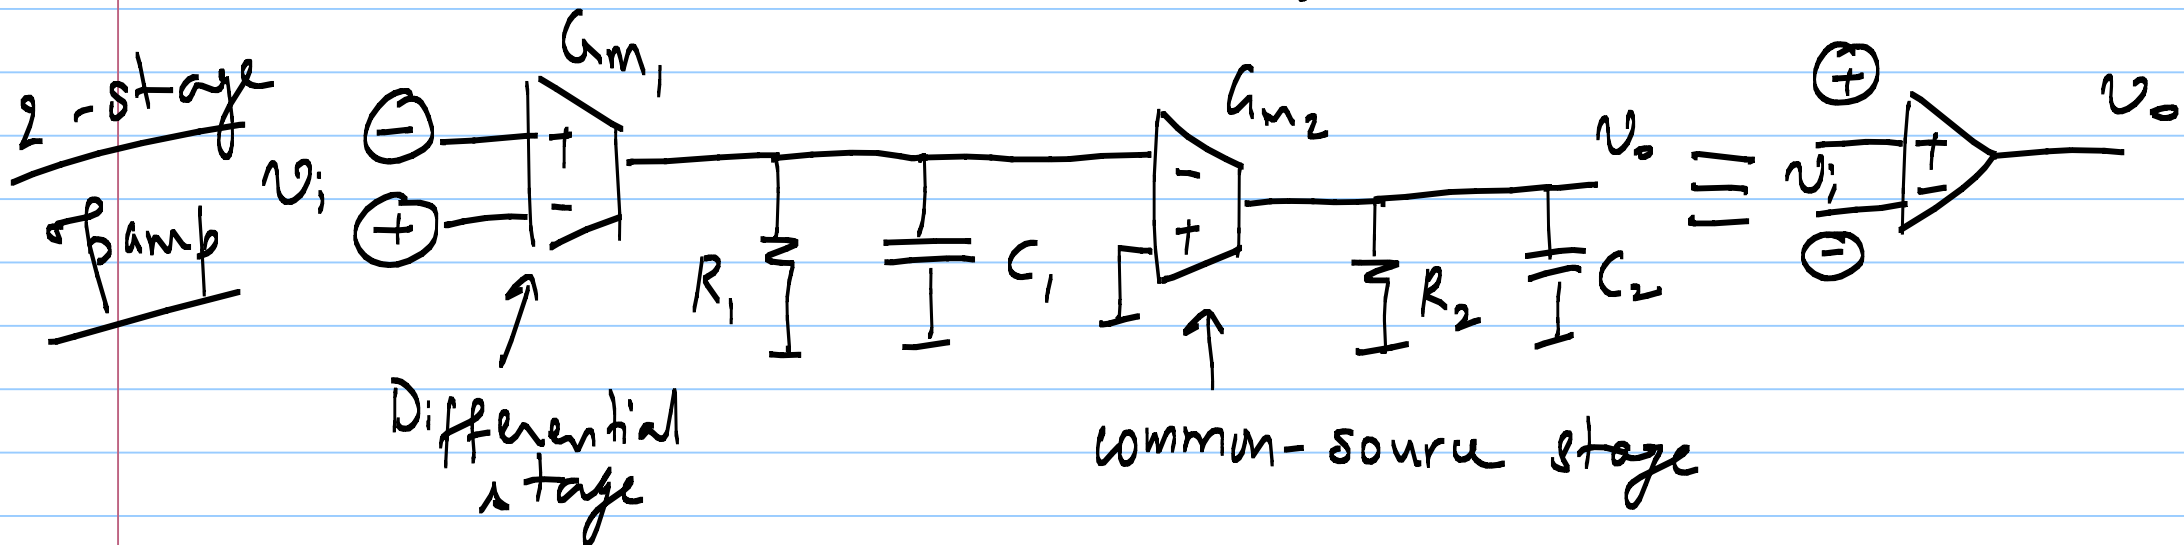 2-stage
opamp
Gm1
vi
−
+
+
-
R1
C1
Gm2
-
+
R2
C2
vo
≡
vi
+
−
+
−
vo
Differential
stage
common-source stage